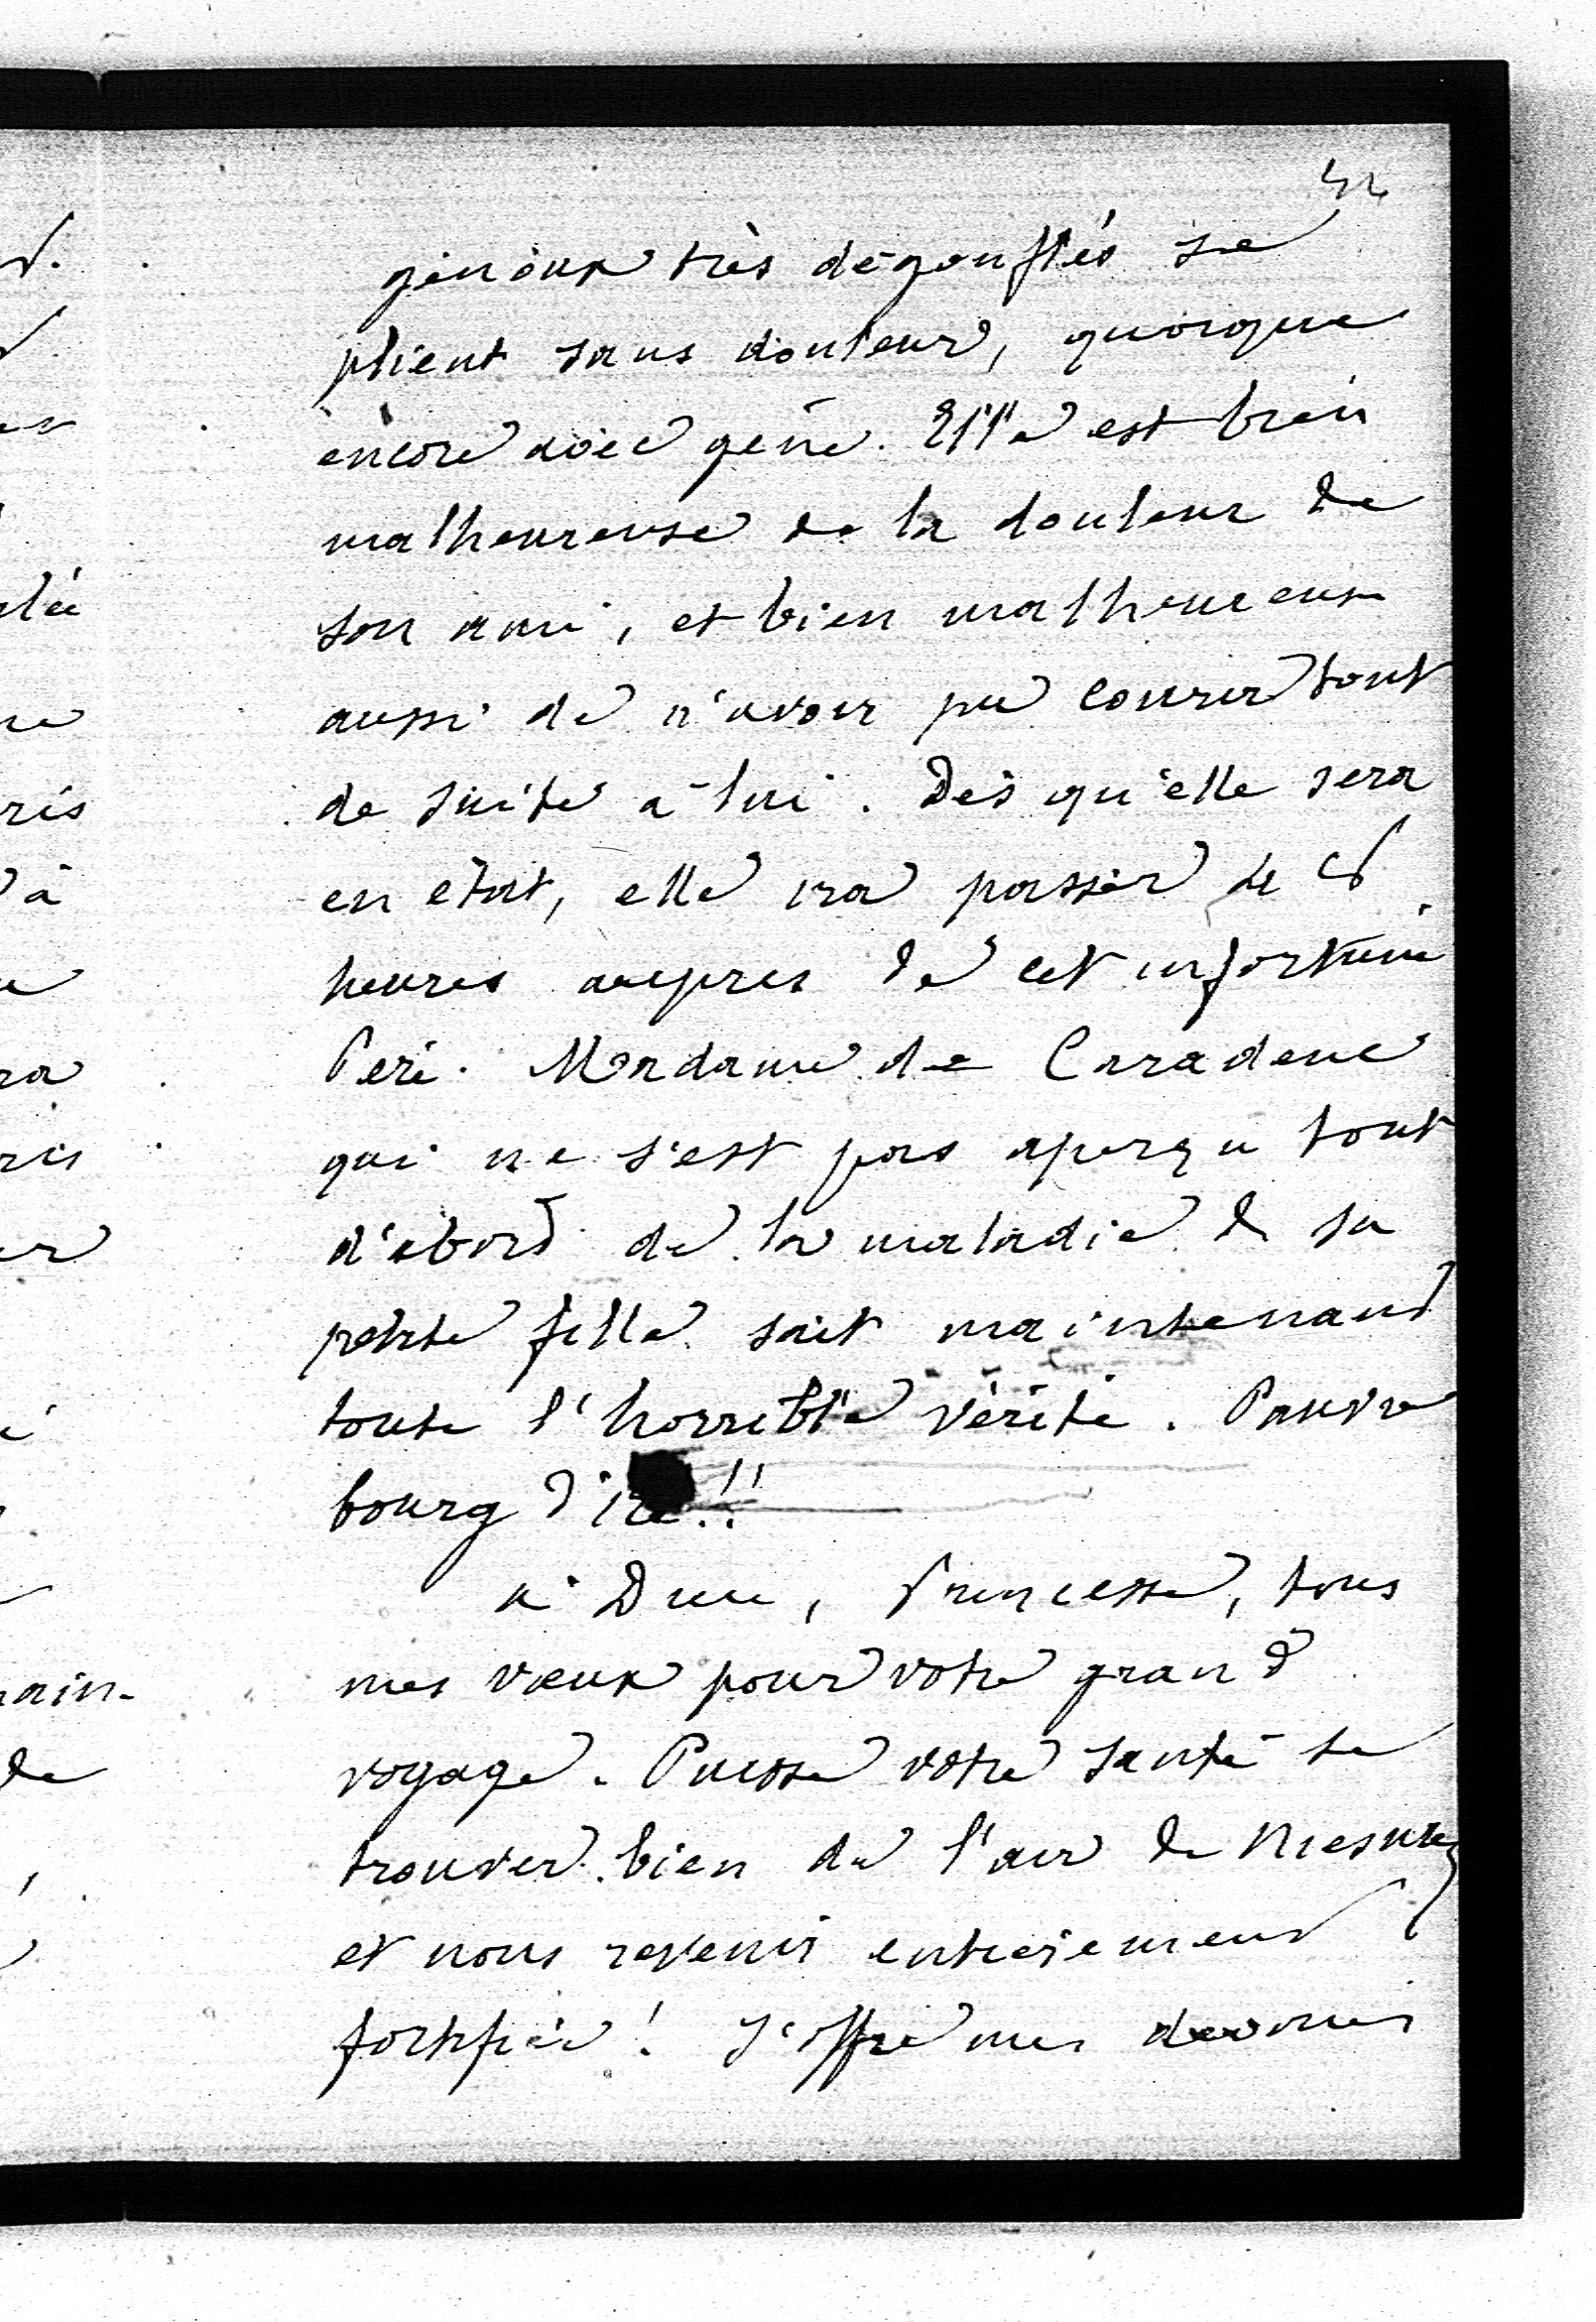 42
genoux très dégonflés se
plient sans douleur, quoique
encore avec gêne. Elle est bien
malheureuse de la douleur de
son ami, et bien malheureuse
aussi de n'avoir pu courir tout
de suite à lui. Dès qu'elle sera
en état, elle ira passer de
heures auprès de cet infortuné
Père. Madame de Caradeuc
qui ne s'est pas aperçu tout
d'abord de la maladie de sa
petite fille sait maintenant
toute l'horrible vérité. Pauvre
bourg d'iré!!
à Dieu, Princesse, tous
mes vœux pour votre grand
voyage. Puisse votre santé se
trouver bien de l'air de
et nous revenir entièrement
fortifiée! J'offre mes devoirs